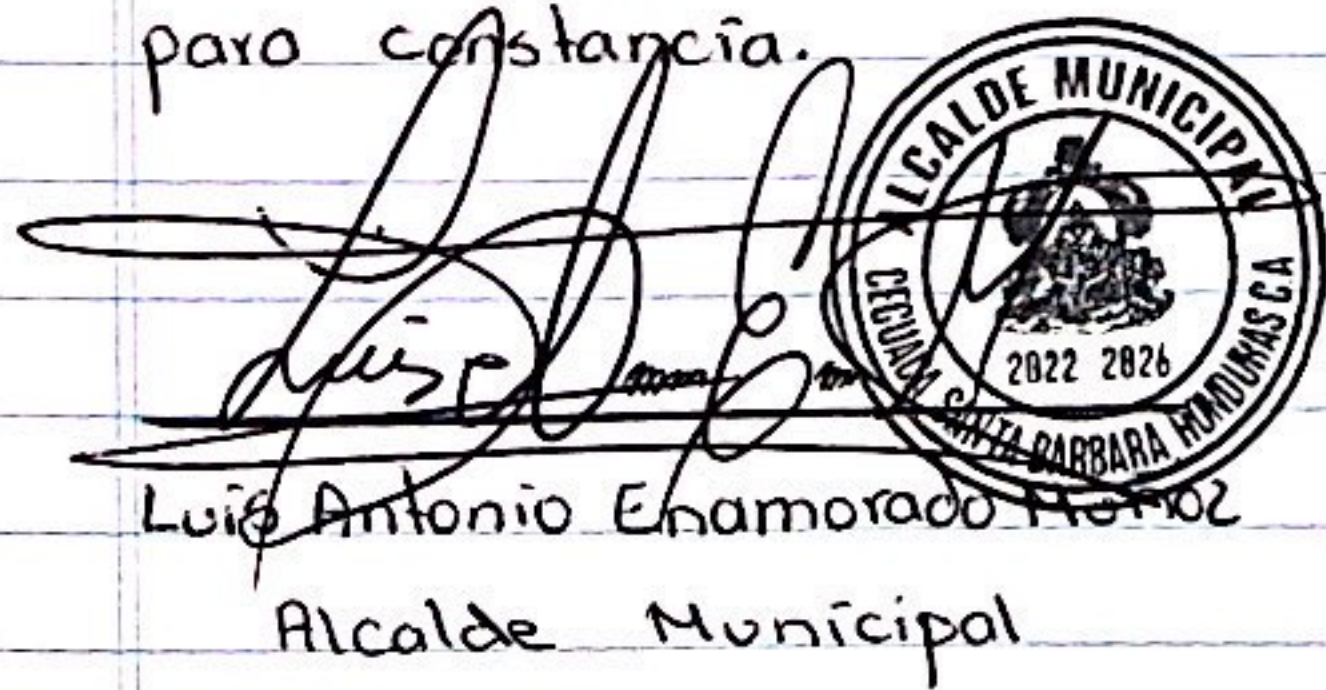 para constancia.
ALCALDE MUNICIPAL
2022 2026
CEGUACA SANTA BARBARA HONDURAS C.A
Luis Antonio Enamorado Muñoz
Alcalde Municipal